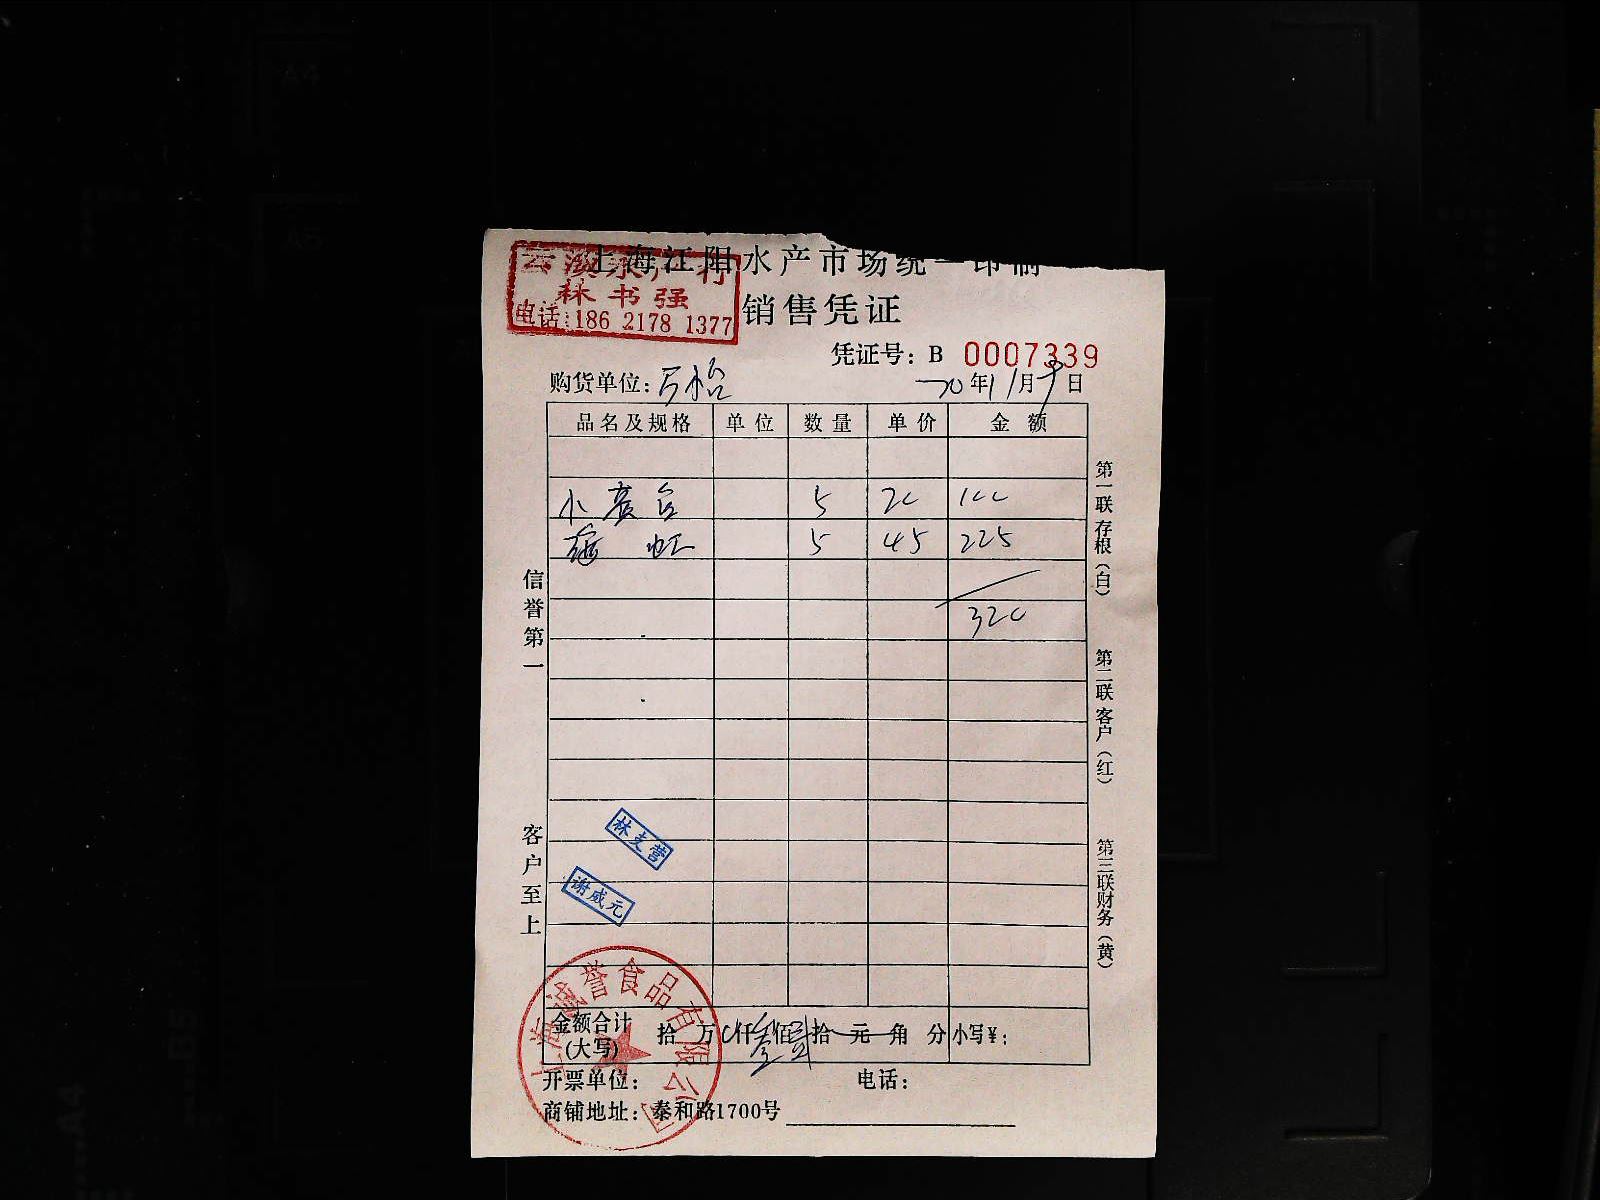 上海江阳水产市场统一印制
林书强
电话:186 2178 1377
销售凭证
凭证号: B 0007339
购货单位:
20年11月9日
品名及规格 单位 数量 单价 金额
小黄 5 20 100
5 45 225
320
信誉第一
客户至上
第一联存根(白)
第二联客户(红)
第三联财务(黄)
林支营
谢威元
上海诚誉食品有限公司
金额合计(大写) 拾 万 仟叁佰贰拾 元 角 分 小写¥:
开票单位: 电话:
商铺地址: 泰和路1700号